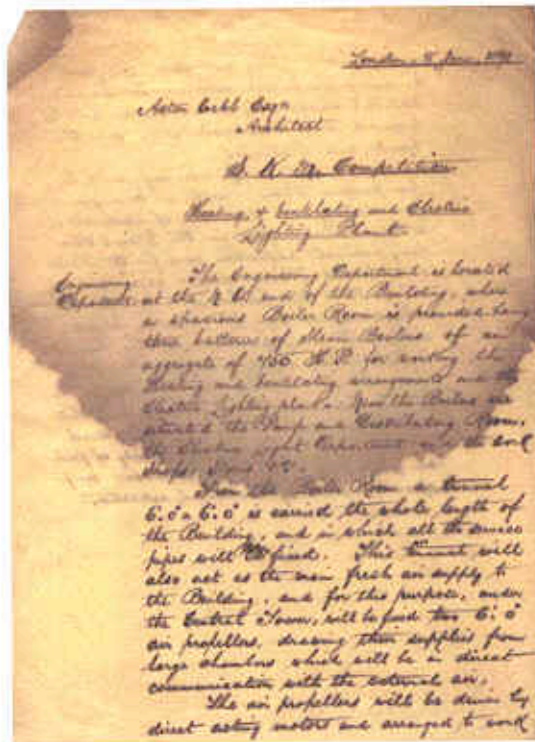 London, 8 June, 1891
Aston Webb Esqr
Architect
S. K. M. Competition
Heating, & Ventilating and Electric
Lighting Plant
Engineering
Department
The Engineering Department is located
at the N. W. end of the Building, where
a spacious Boiler Room is provided having
three batteries of Steam Boilers of an
aggregate of 750 H.P. for working the
Heating and Ventilating arrangements and the
Electric Lighting plant. Near the Boilers are
situated the Pump and Distributing Room,
the Electric Light Department and the Work
shops, Stores &c.
From the Boiler Room a Tunnel
6'.0" x 6'.0" is carried the whole length of
the Building, and in which all the service
pipes will be fixed. This Tunnel will
also act as the main fresh air supply to
the Building, and for this purpose, under
the Central Tower, will be fixed two 6'.0"
air propellers, drawing their supplies from
large chambers which will be in direct
communication with the external air.
The air propellers will be driven by
direct acting motors and arranged to work